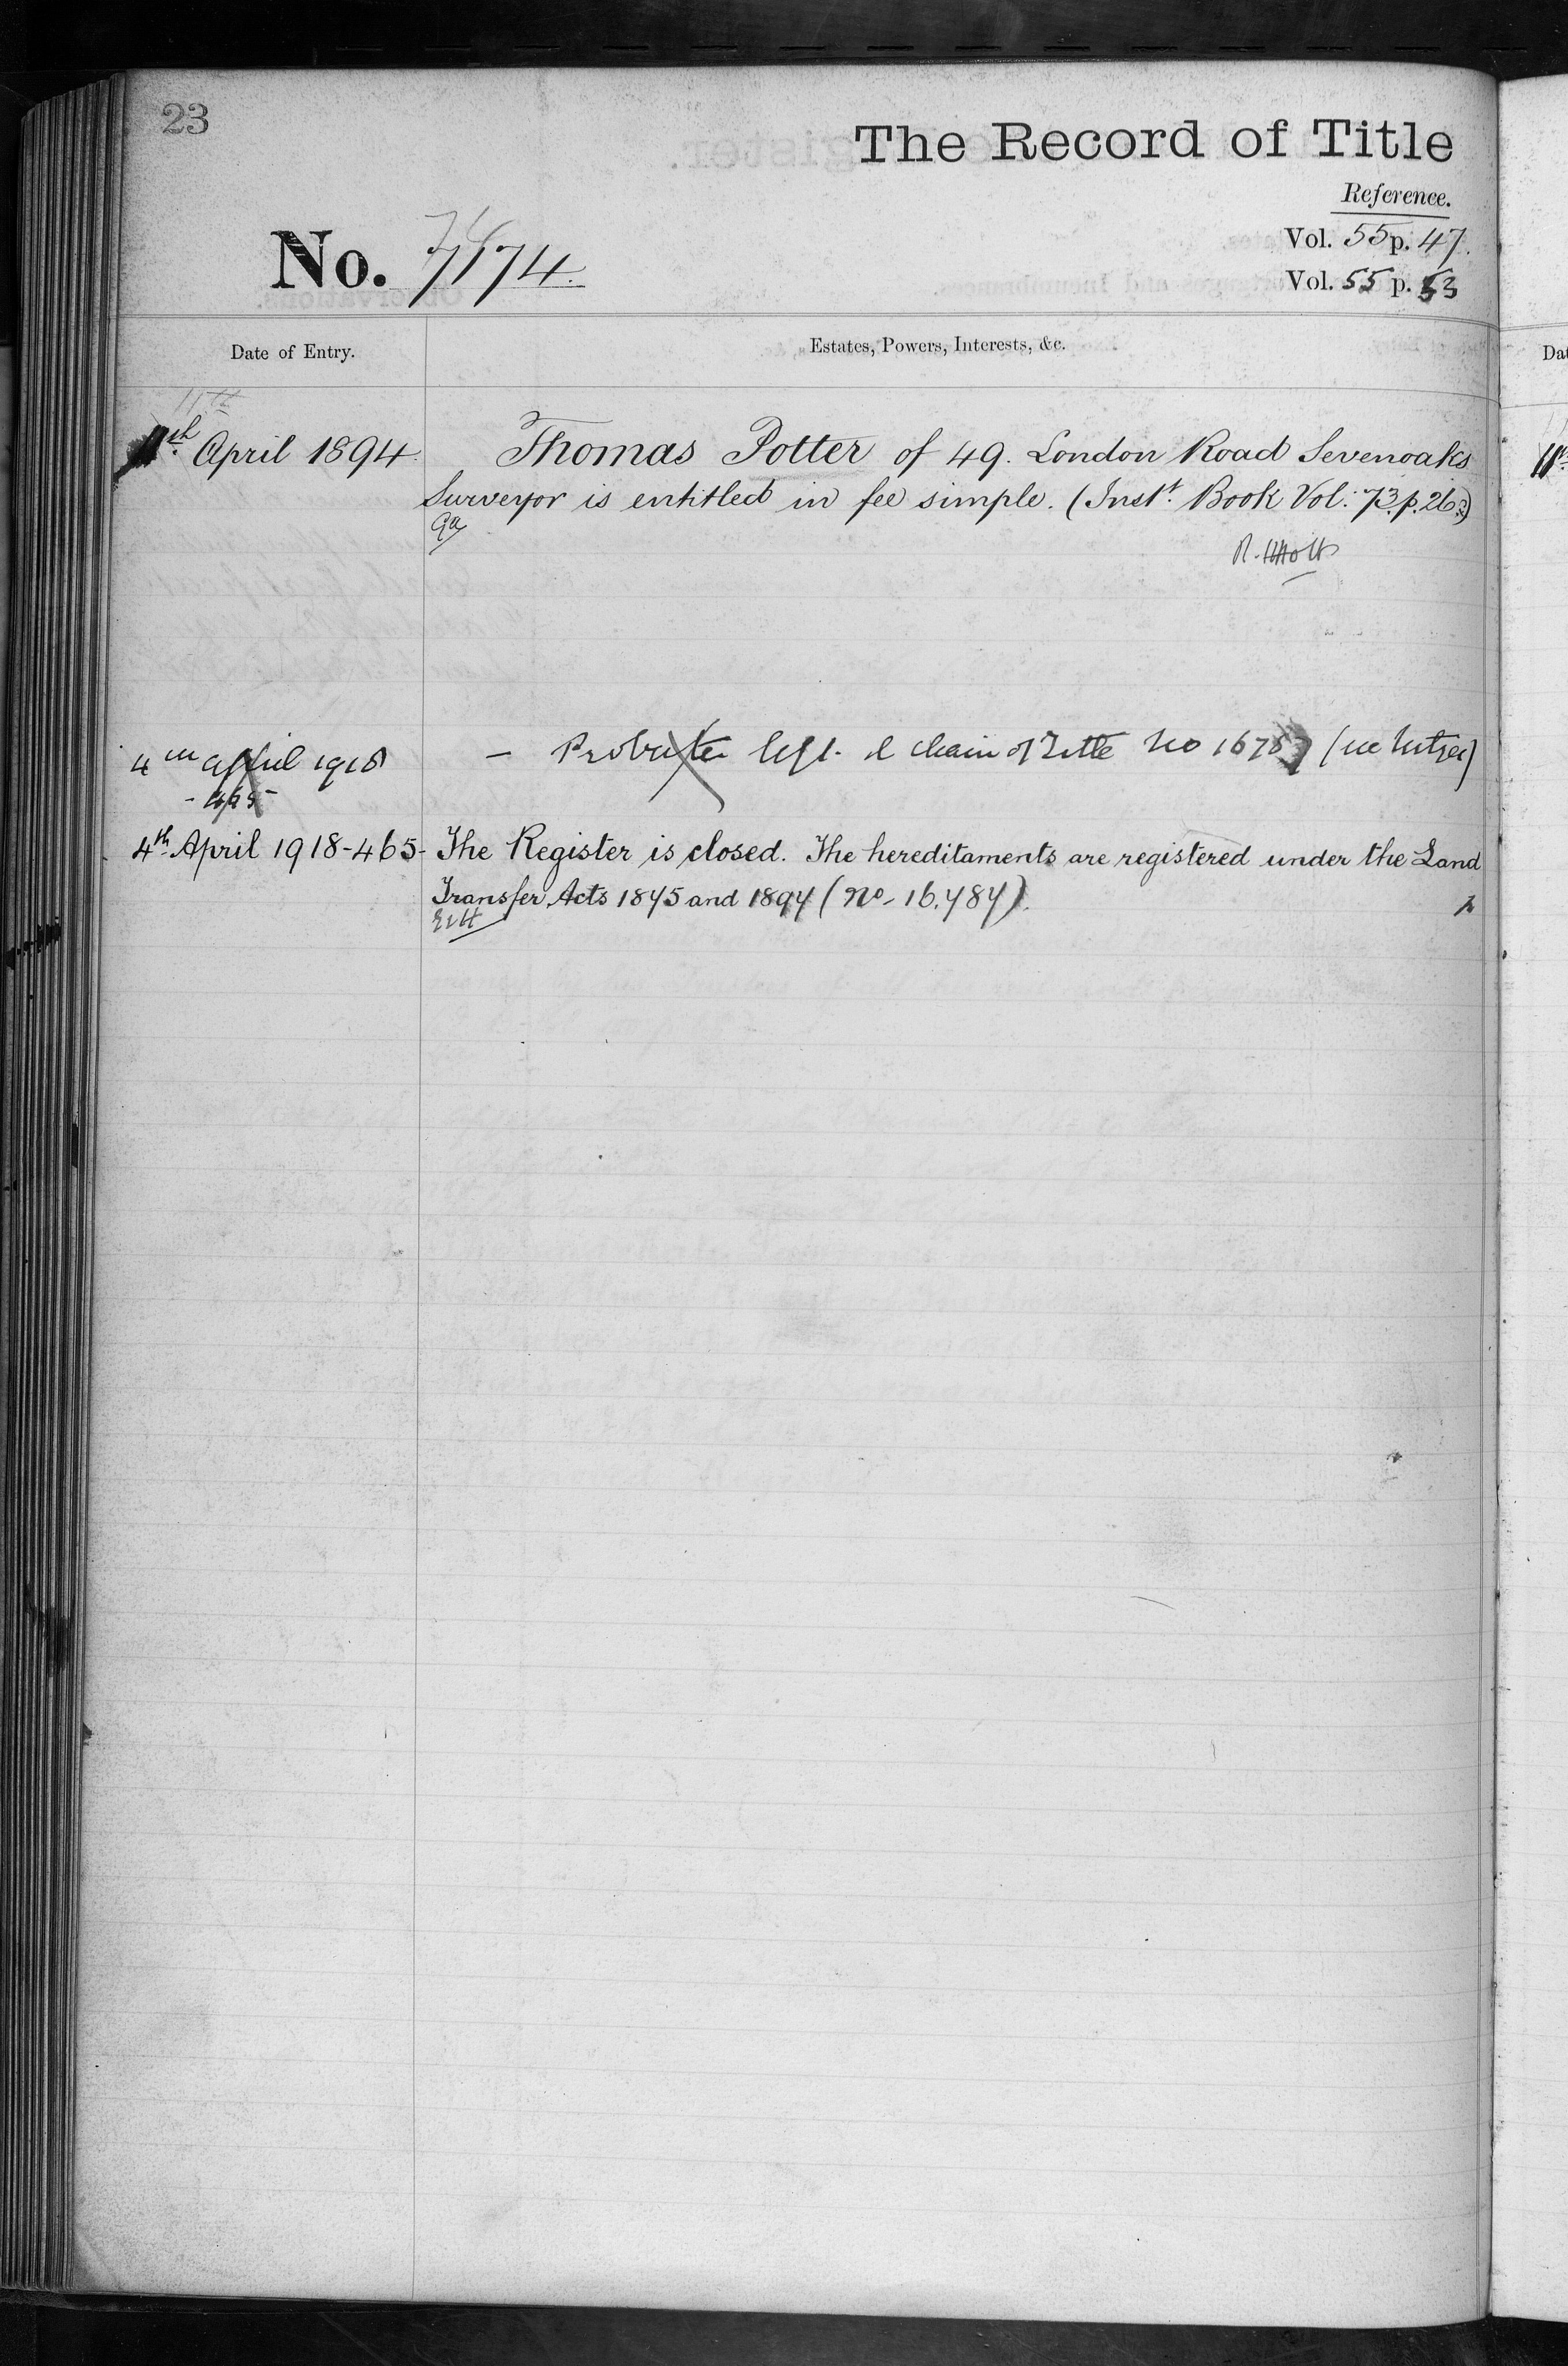 23
The Record of Title
Reference.
No. 7174.
Vol. 55 p. 47.
Vol. 55 p. 53
Date of Entry.
Estates, Powers, Interests, &c.
11th
11th. April 1894.
Thomas Potter of 49. London Road Sevenoaks
Surveyor is entitled in fee simple. (Inst. Book Vol: 73. p. 26.)
4th April 1918
- 465 -
- chain of Title No
4th April 1918-465-
The Register is closed. The hereditaments are registered under the Land
Transfer Acts 1875 and 1897 (No. 16,787).